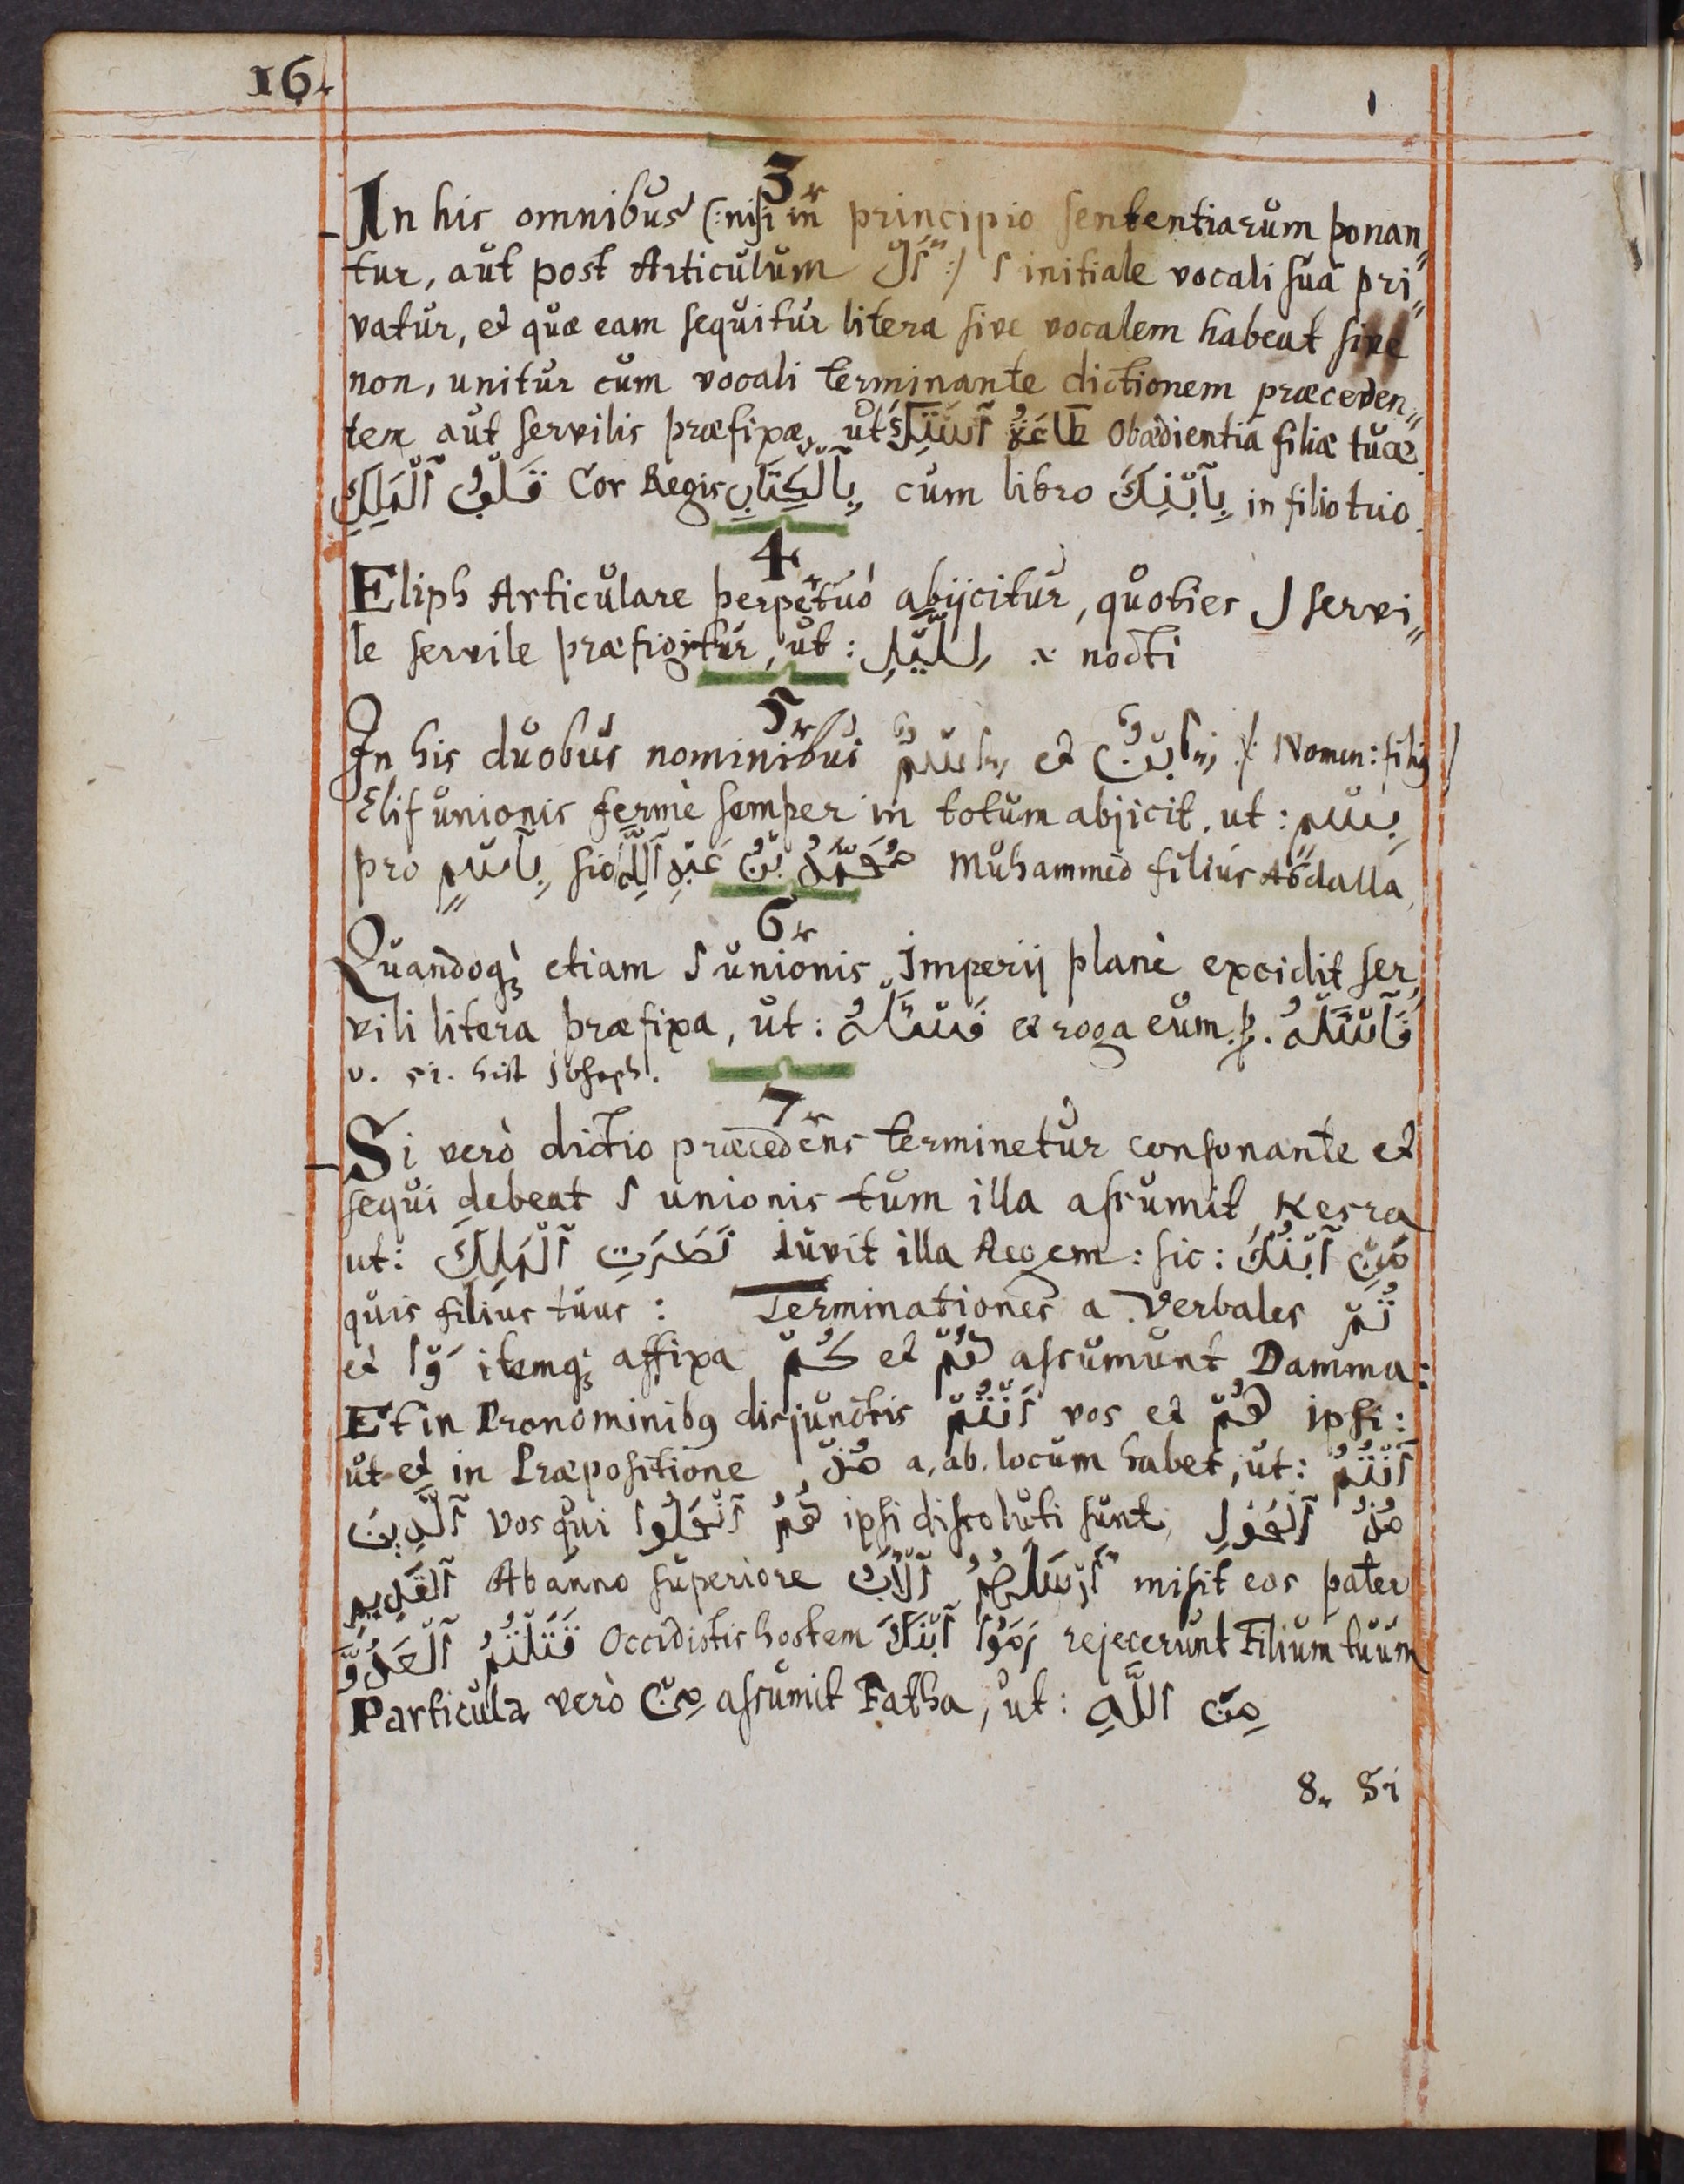 16.
3.
In his omnibus (:nisi in principio sententiarum ponan„
tur, aut post Articulum اَلْ :) ا initiale vocali sua pri„
vatur, et quæ eam sequitur litera sive vocalem habeat sive
non, unitur cum vocali terminante dictionem præceden„
tem aut servilis præfixæ, ut طَاعَةُ ٱبْنَتِكَ Obædientia filiæ tuæ
قَلْبُ ٱلْمَلِكِ Cor Regis بِٱلْكِتَابِ cum libro بِٱبْنِكَ in filio tuo
4.
Eliph Articulare perpetuò abijcitur, quoties ل servi„
le servile præfigitur, ut: لِلَّيْلِ nocti
5.
In his duobus nominibus إِسْمٌ et إِبْنٌ Nomen: filij
Elif unionis fermè semper in totum abjicit, ut: بِسْمٍ
pro بِٱسْمٍ sic مُحَمَّدُ بْنُ عَبْدِ ٱللَّهِ Muhammed filius Abdalla
6.
Quandoqꝫ etiam ا unionis Imperij planè excidit ser„
vili litera præfixa, ut: فَسْئَلْهُ et roga eum. p. فَٱسْئَلْهُ
v. 51. hist Joseph.
7.
Si verò dictio præcedens terminetur consonante et
sequi debeat ا unionis tum illa assumit Kesra
ut: نَصَرَتِ ٱلْمَلِكَ Iuvit illa Regem: sic: مَنِ ٱبْنُكَ
quis filius tuus: Terminationes a Verbales تُمْ
et وْا itemqꝫ affixa كُمْ et هُمْ assumunt Damma:
Et in Pronominibꝯ disjunctis اَنْتُمْ vos et هُمْ ipsi:
ut et in Præpositione مُنْذُ a, ab. locum habet, ut: اَنْتُمُ
ٱلَّذِينَ vos qui هُمُ ٱنْحَلُوا ipsi dissoluti sunt, مُنْذُ ٱلْحَوْلِ
ٱلْقَدِيمِ Ab anno superiore اَرْسَلَهُمُ ٱلْأَبُ misit eos pater
قَتَلْتُمُ ٱلْعَدُوَّ Occidistis hostem رَمَوُا ٱبْنَكَ rejecerunt Filium tuum
Particula verò مِنْ assumit Fatha, ut: مِنَ اللَّهِ
8. Si